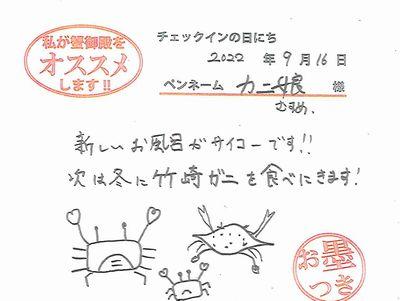 私が蟹御殿を
オススメ
します!!
チェックインの日にち
2022 年 9 月 16 日
ペンネーム カニ娘 様
むすめ.
新しいお風呂がサイコーです!!
次は冬に竹崎ガニを食べにきます!
お墨
つき